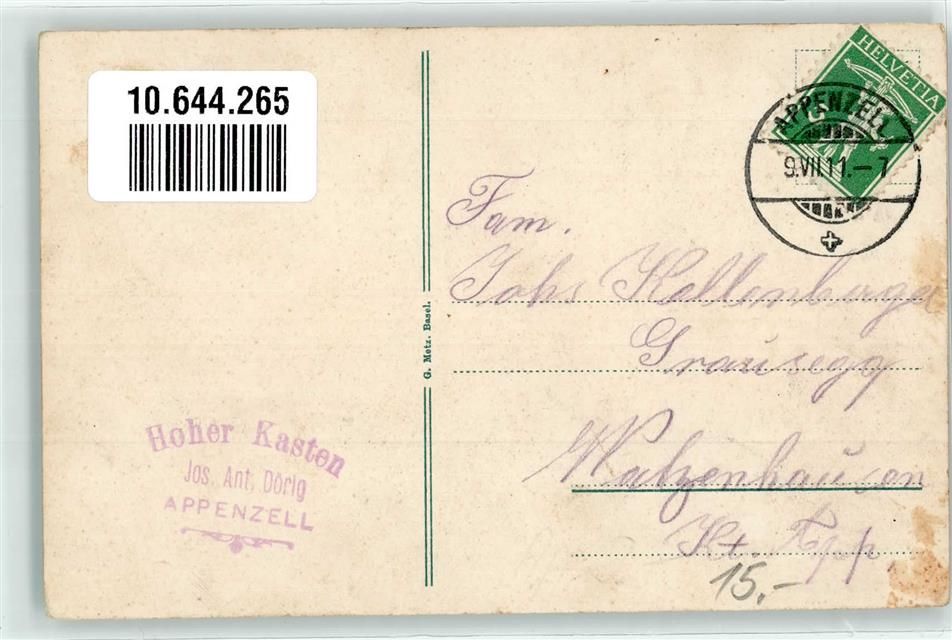 10.644.265
HELVETIA
APPENZELL
9.VII.11.–7
Fam.
Johs Kellenberger
Grausegg
Walzenhausen
Kt. App.
15.–
G. Metz. Basel.
Hoher Kasten
Jos. Ant. Dörig
APPENZELL